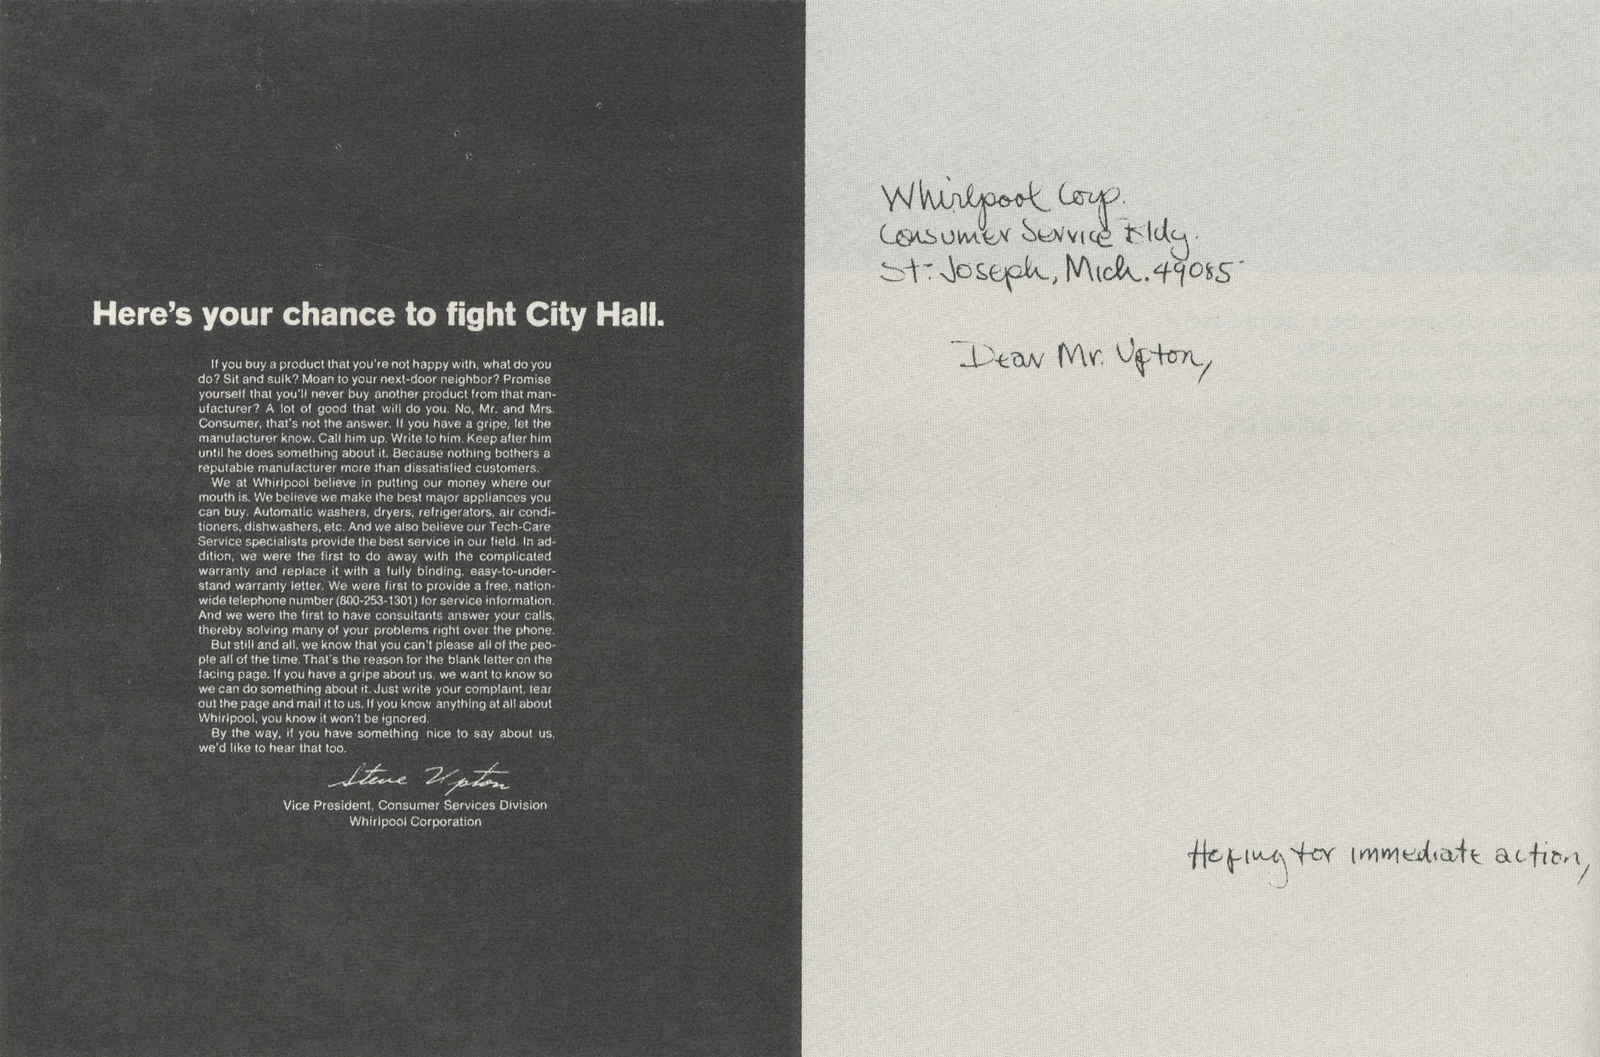 Here's your chance to fight City Hall.
If you buy a product that you're not happy with, what do you
do? Sit and sulk? Moan to your next-door neighbor? Promise
yourself that you'll never buy another product from that man-
ufacturer? A lot of good that will do you. No, Mr. and Mrs.
Consumer, that's not the answer. If you have a gripe, let the
manufacturer know. Call him up. Write to him. Keep after him
until he does something about it. Because nothing bothers a
reputable manufacturer more than dissatisfied customers.
We at Whirlpool believe in putting our money where our
mouth is. We believe we make the best major appliances you
can buy. Automatic washers, dryers, refrigerators, air condi-
tioners, dishwashers, etc. And we also believe our Tech-Care
Service specialists provide the best service in our field. In ad-
dition, we were the first to do away with the complicated
warranty and replace it with a fully binding, easy-to-under-
stand warranty letter. We were first to provide a free, nation-
wide telephone number (800-253-1301) for service information.
And we were the first to have consultants answer your calls,
thereby solving many of your problems right over the phone.
But still and all, we know that you can't please all of the peo-
ple all of the time. That's the reason for the blank letter on the
facing page. If you have a gripe about us, we want to know so
we can do something about it. Just write your complaint, tear
out the page and mail it to us. If you know anything at all about
Whirlpool, you know it won't be ignored.
By the way, if you have something nice to say about us,
we'd like to hear that too.
Steve Upton
Vice President, Consumer Services Division
Whirlpool Corporation
Whirlpool Corp.
Consumer Service Bldg.
St. Joseph, Mich. 49085
Dear Mr. Upton,
Hoping for immediate action,